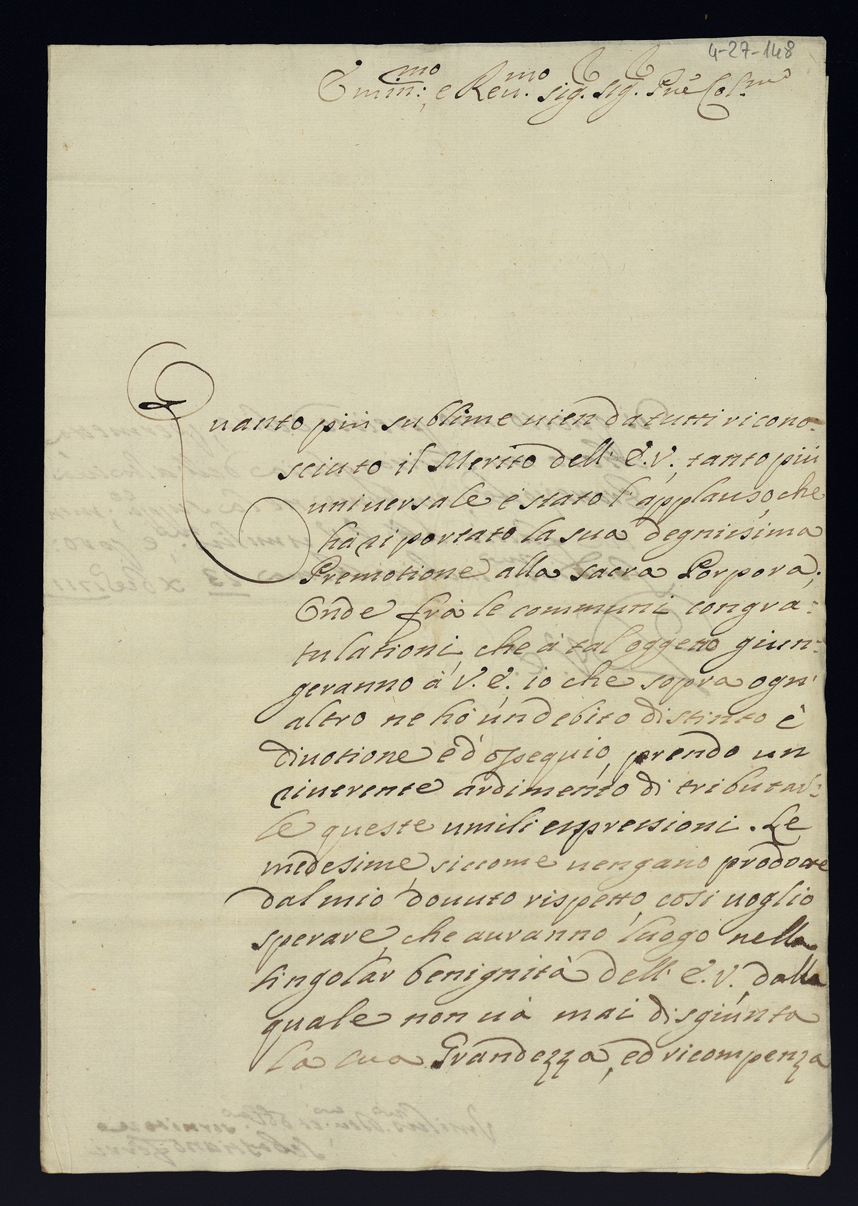 4-27-148
Emin:mo, e Reu.mo Sig. Sig. Prē Col.mo
Quanto più sublime uien da tutti ricono:
sciuto il Merito dell' E.V., tanto più
universale è stato l'applauso, che
hà riportato la sua degnissima
Promotione alla Sacra Porpora;
Onde frà le communi congra:
tulationi, che a tal oggetto giun:
geranno à V.E. io che sopra ogn'
altro ne hò un debito distinto è
diuotione, e d'ossequio, prendo un
riuerente ardimento di tributar:
le queste umili espressioni. Le
medesime, siccome uengano prodotte
dal mio douuto rispetto, così uoglio
sperare, che auranno luogo nella
singolar benignità dell' E.V. dalla
quale non uà mai disgiunta
la sua Grandezza, ed ricompenza